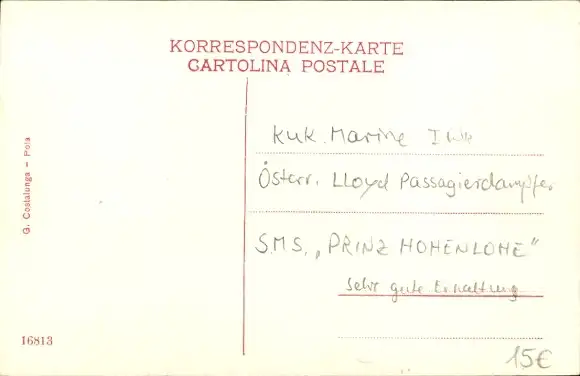 KORRESPONDENZ-KARTE
CARTOLINA POSTALE
KuK. Marine I WK
Österr. Lloyd Passagierdampfer
S.M.S. „PRINZ HOHENLOHE"
Sehr gute Erhaltung
G. Costalunga – Pola
16813
15€